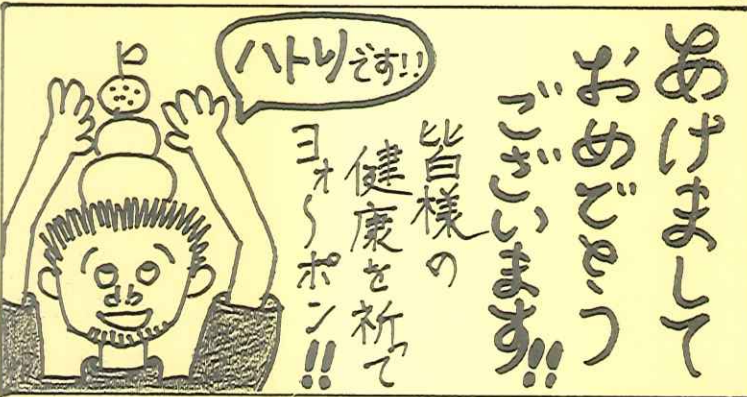 あけまして
おめでとう
ございます!!
皆様の
健康を祈って
ヨォ〜ポン!!
ハトリです!!